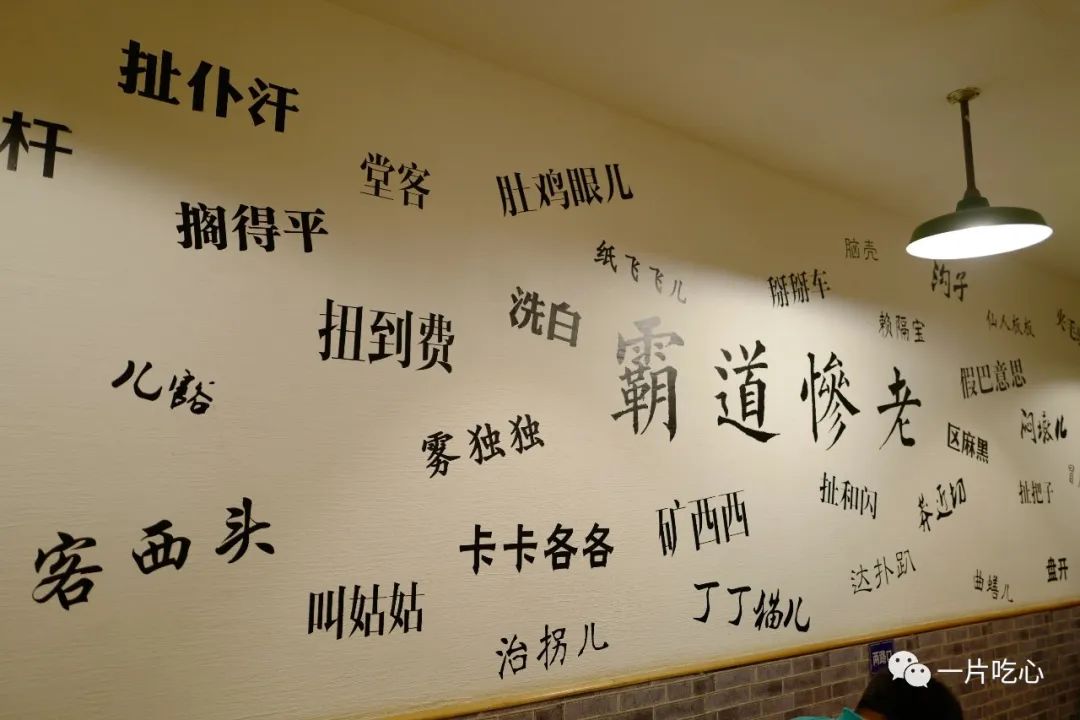 扯仆汗
杆
堂客
肚鸡眼儿
搁得平
纸飞飞儿
脑壳
掰掰车
沟子
扭到费
洗白
赖隔宝
仙人板板
霸道惨老
儿豁
假巴意思
雾独独
区麻黑
闷墩儿
扯和闪
莽近切
扯把子
客西头
卡卡各各
矿西西
达扑趴
曲蟮儿
盘开
叫姑姑
丁丁猫儿
治拐儿
两路口
一片吃心